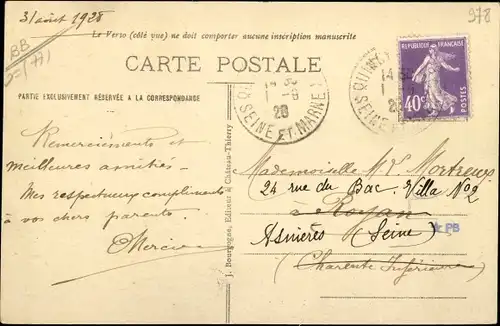 31 août 1928
978
BB
(77)
Le Verso (côté vue) ne doit comporter aucune inscription manuscrite
CARTE POSTALE
PARTIE EXCLUSIVEMENT RÉSERVÉE A LA CORRESPONDANCE
14 30
1 - 9
28
SEINE ET MARNE
14 30
28
RÉPUBLIQUE FRANÇAISE
40c
POSTES
Remerciements et
meilleures amitiés.
Mes respectueux compliments
à vos chers parents.
J. Bourgogne, Editeur à Château-Thierry
Mademoiselle M. L. Mortreux
24 rue du Bac. Villa No 2
à Royan
Asnières (Seine)
PB
(Charente Inférieure)